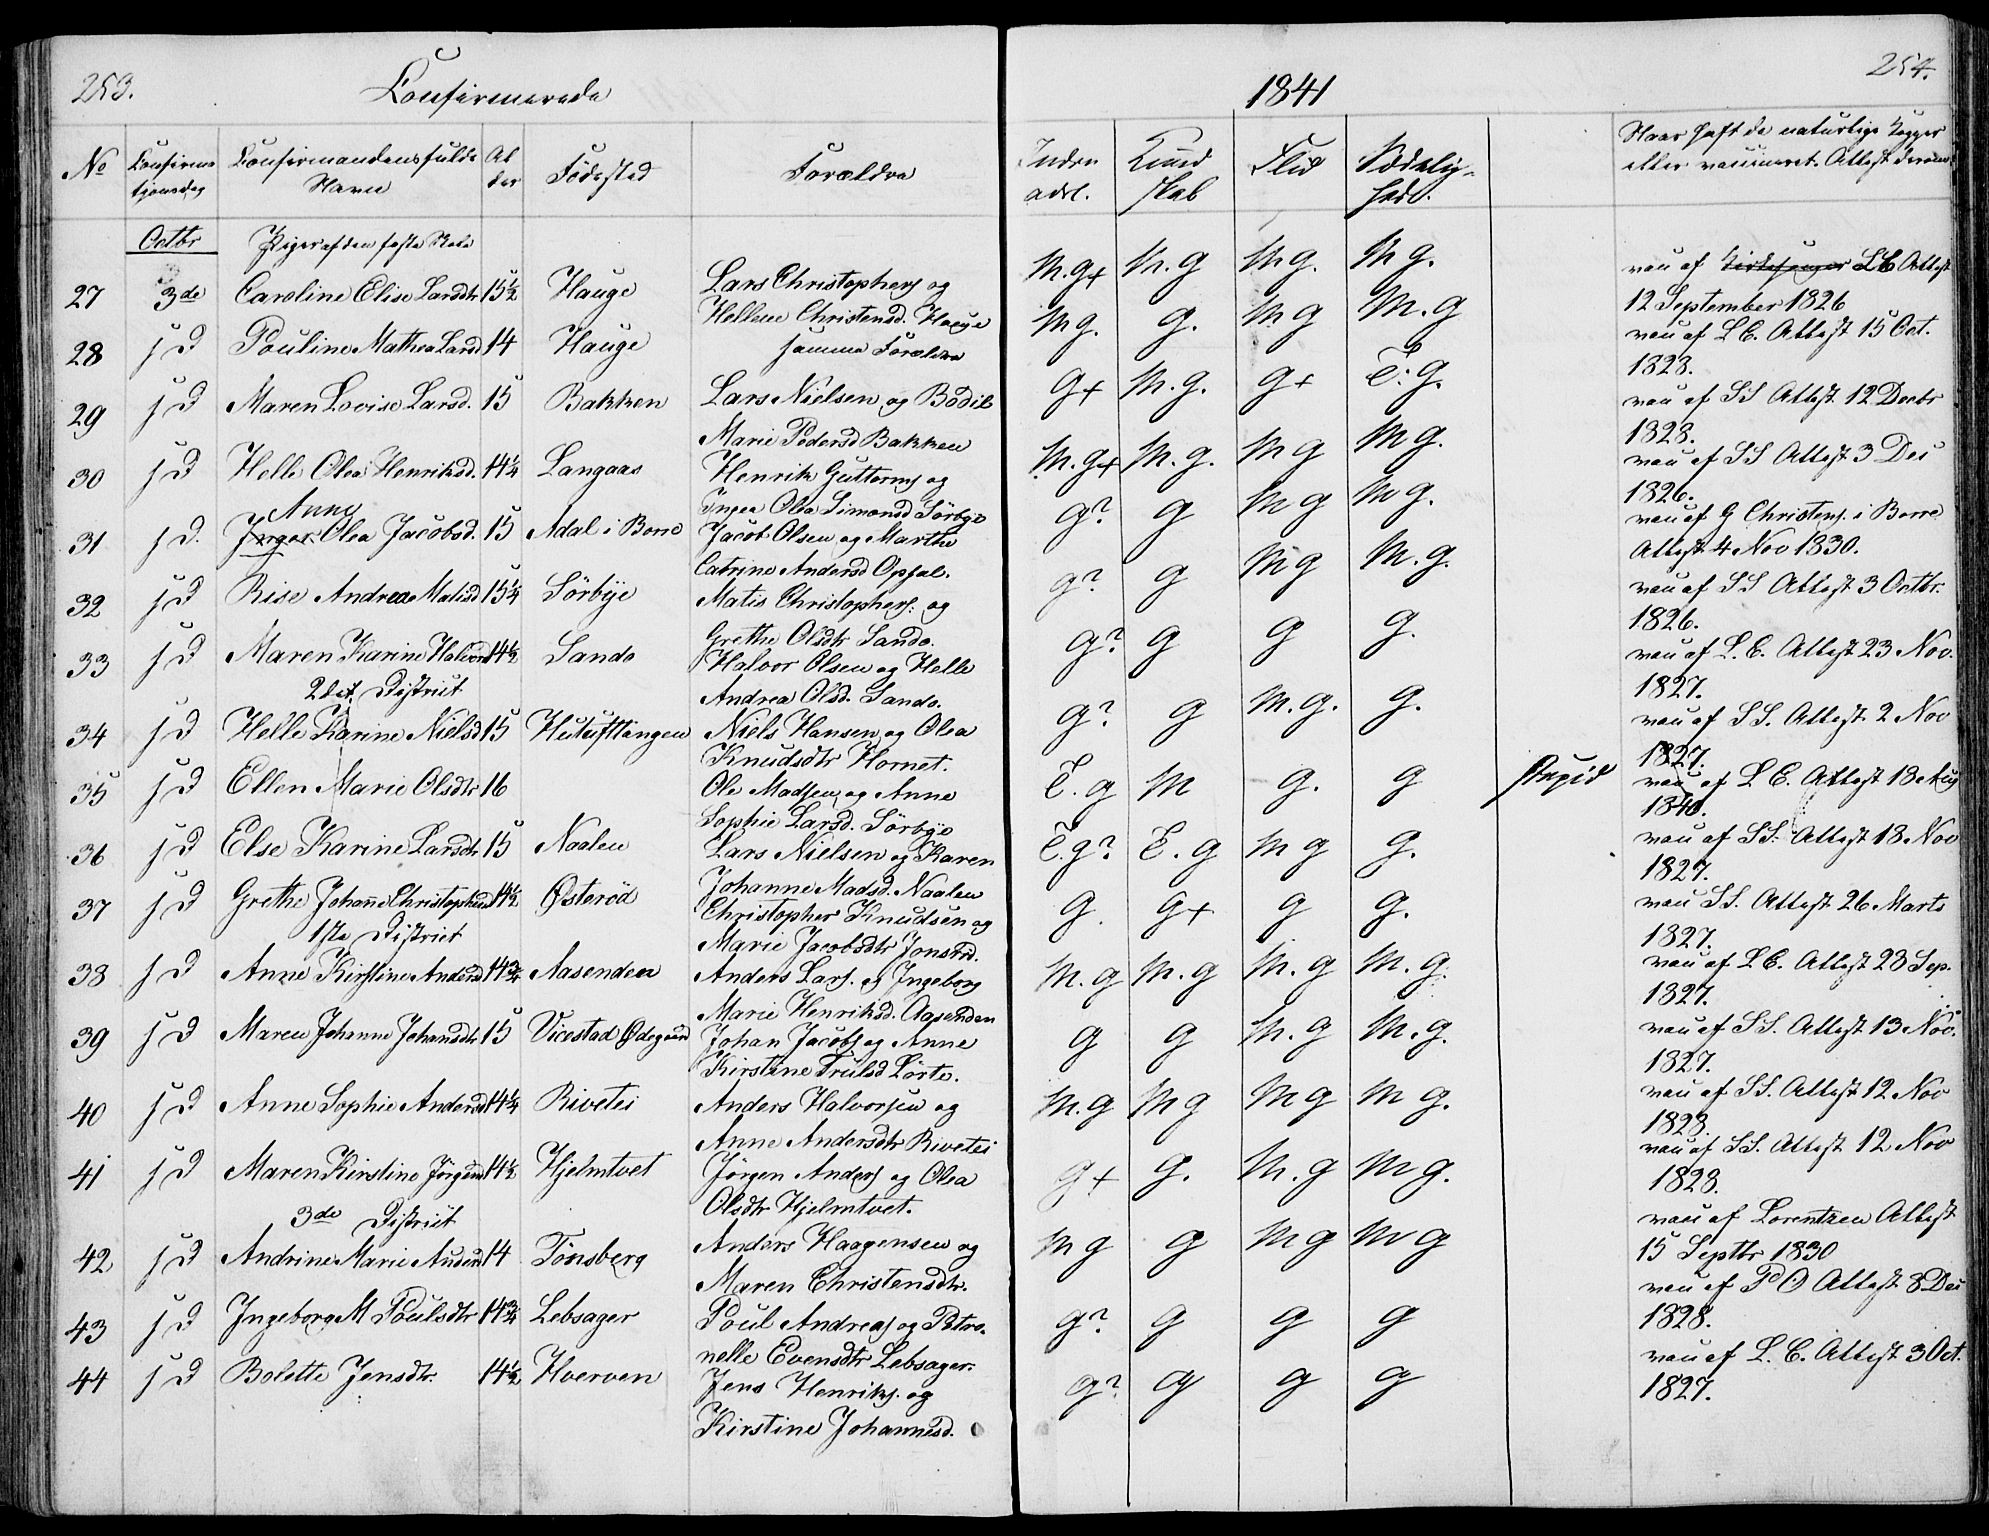 253. Confirmerede 1841 254.
No Confirmationsdag Confirmandens fulde Navn Alder Födested Forældre Indenadl. Kundskab Flid Sædelighed. Naar haft de naturlige Kopper eller vaccineret. Attest derom.
Octbr Piger af den faste Skole
27 3de Caroline Elise Larsdtr 15½ Hauge Lars Christophers og M.g+ M.g Mg. Mg. vac af Kirkesanger LC Attest
Hellene Christensd. Hauge 12 September 1826
28 s D Pouline Mathea Larsd 14 Hauge samme Forældre Mg. g. Mg M.g vac af L C. Attest 15 Oct.
1828.
29 s D Maren Lovise Larsd. 15 Bakken Lars Nielsen og Bodil g+ M.g. g+ T.g. vac af SS Attest 12 Decbr
Marie Pedersd Bakken 1828.
30 s D Helle Olea Henriksd. 14¼ Langaas Henrik Guttorms og M.g+ M.g. Mg Mg. vac af SS Attest 3 Dec
Ingea Olea Simonsd Sörbye 1826.
Anne
31 s D. Inger Olea Jacobsd. 15 Adal i Borre Jacob Olsen og Marthe g? g Mg Mg. vac af G Christens. i Borre
Catrine Andersd Opsal. Attest 4 Nov 1830.
32 s D Rise Andrea Matisd 15¼ Sörbye Matis Christophers. og g? g Mg M.g. vac af SS Attest 3 Octbr.
Grethe Olsdtr Sando. 1826.
33 s D Maren Karine Halvorsd 14½ Sando Halvor Olsen og Helle g? g g g. vac af L.C. Attest 23 Nov.
2det District Andrea Olsd. Sando. 1827.
34 s D Helle Karine Nielsd 15 Hutufttangen Niels Hansen og Olea g? g M.g. g. vac af SS. Attest 2 Nov
Knudsdtr Hornet. 1827.
35 s D Ellen Marie Olsdtr 16 Ole Madsen og Anne T.g M g. g stupid vac af L C. Attest 18 Aug
Sophie Larsd. Sörbye 1840.
36 s D Else Karine Larsdtr 15 Naalen Lars Nielsen og Karen T.g? T.g Mg g. vac af SS. Attest 18 Nov
Johanne Madsd. Naalen 1827.
37 s D Grethe Johanne Christophersd 14½ Österöd Christopher Knudsen og g. g+ g g. vac SS. Attest 26 Marts
1ste District Marie Jacobsdtr Jonsrd. 1827.
38 s D Anne Kirstine Andersd 14¾ Aasenden Anders Lars. og Ingeborg M.g M.g M.g M.g. vac af L C. Attest 28 Sep.
Marie Henriksd. Aasenden 1827.
39 s D Maren Johanne Johansdtr 15 Vicestad Ødegaard Johan Jacobs og Anne g g M.g M.g. vac af SS. Attest 13 Nov.
Kirstine Trulsd Lörte. 1827.
40 s D Anne Sophie Andersd 14¼ Rivetei Anders Halvorsen og M.g Mg Mg Mg. vac af SS. Attest 12 Nov
Anne Andersdtr Rivetei 1828.
41 s D Maren Kirstine Jörgensd 14½ Hjelmtvet Jörgen Anders og Olea g+ g. M.g Mg. vac af SS. Attest 12 Nov
3de District Olsdtr Hjelmtvet. 1828.
42 s D Andrine Marie Andersd 14 Tönsberg Anders Haagensen og Mg g Mg Mg vac af Lorentzen Attest
Maren Christensdtr. 15 Septbr 1830
43 s D Ingeborg M Poulsdtr 14¾ Lebsager Poul Andreas og Petro- g? g g g vac af P O Attest 8 Dec
nelle Evensdtr Lebsager. 1828.
44 s D Bolette Jensdtr. 14½ Hverven Jens Henriks. og g? g g g vac af L. C. Attest 3 Oct.
Kirstine Johannesd. 1827.